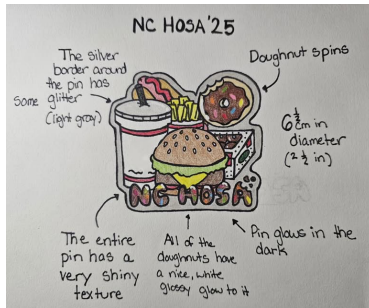 NC HOSA '25
The silver
border around
the pin has
some glitter
(light gray)
Doughnut spins
6 ½ cm in
diameter
(2 ½ in)
NC HOSA
The entire
pin has a
very shiny
texture
All of the
doughnuts have
a nice, white
glossy glow to it
Pin glows in the
dark